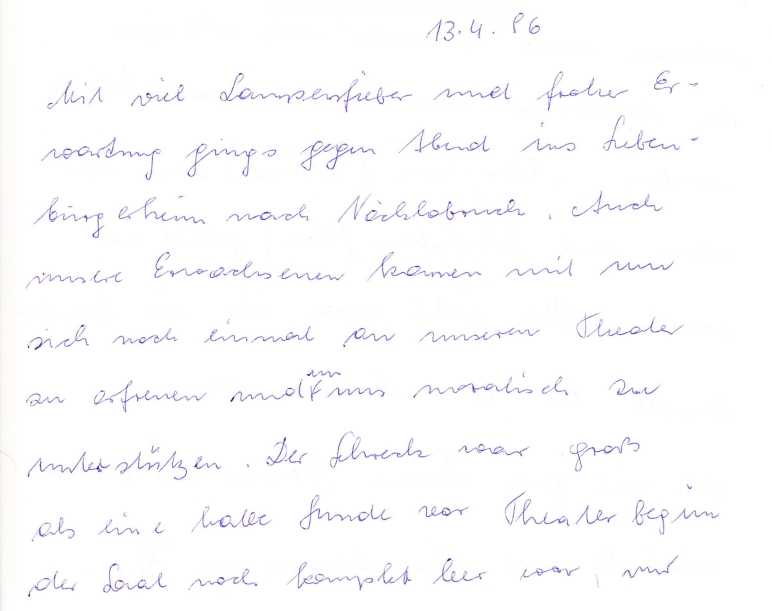 13.4.86
Mit viel Lampenfieber und froher Er-
wartung gings gegen Abend ins Sieben-
bürgerheim nach Vöcklabruck. Auch
unsere Erwachsenen kamen mit um
sich noch einmal an unseren Theater
zu erfreuen und um uns moralisch zu
unterstützen. Der Schreck war groß
als eine halbe Stunde vor Theaterbeginn
der Saal noch komplet leer war, nur